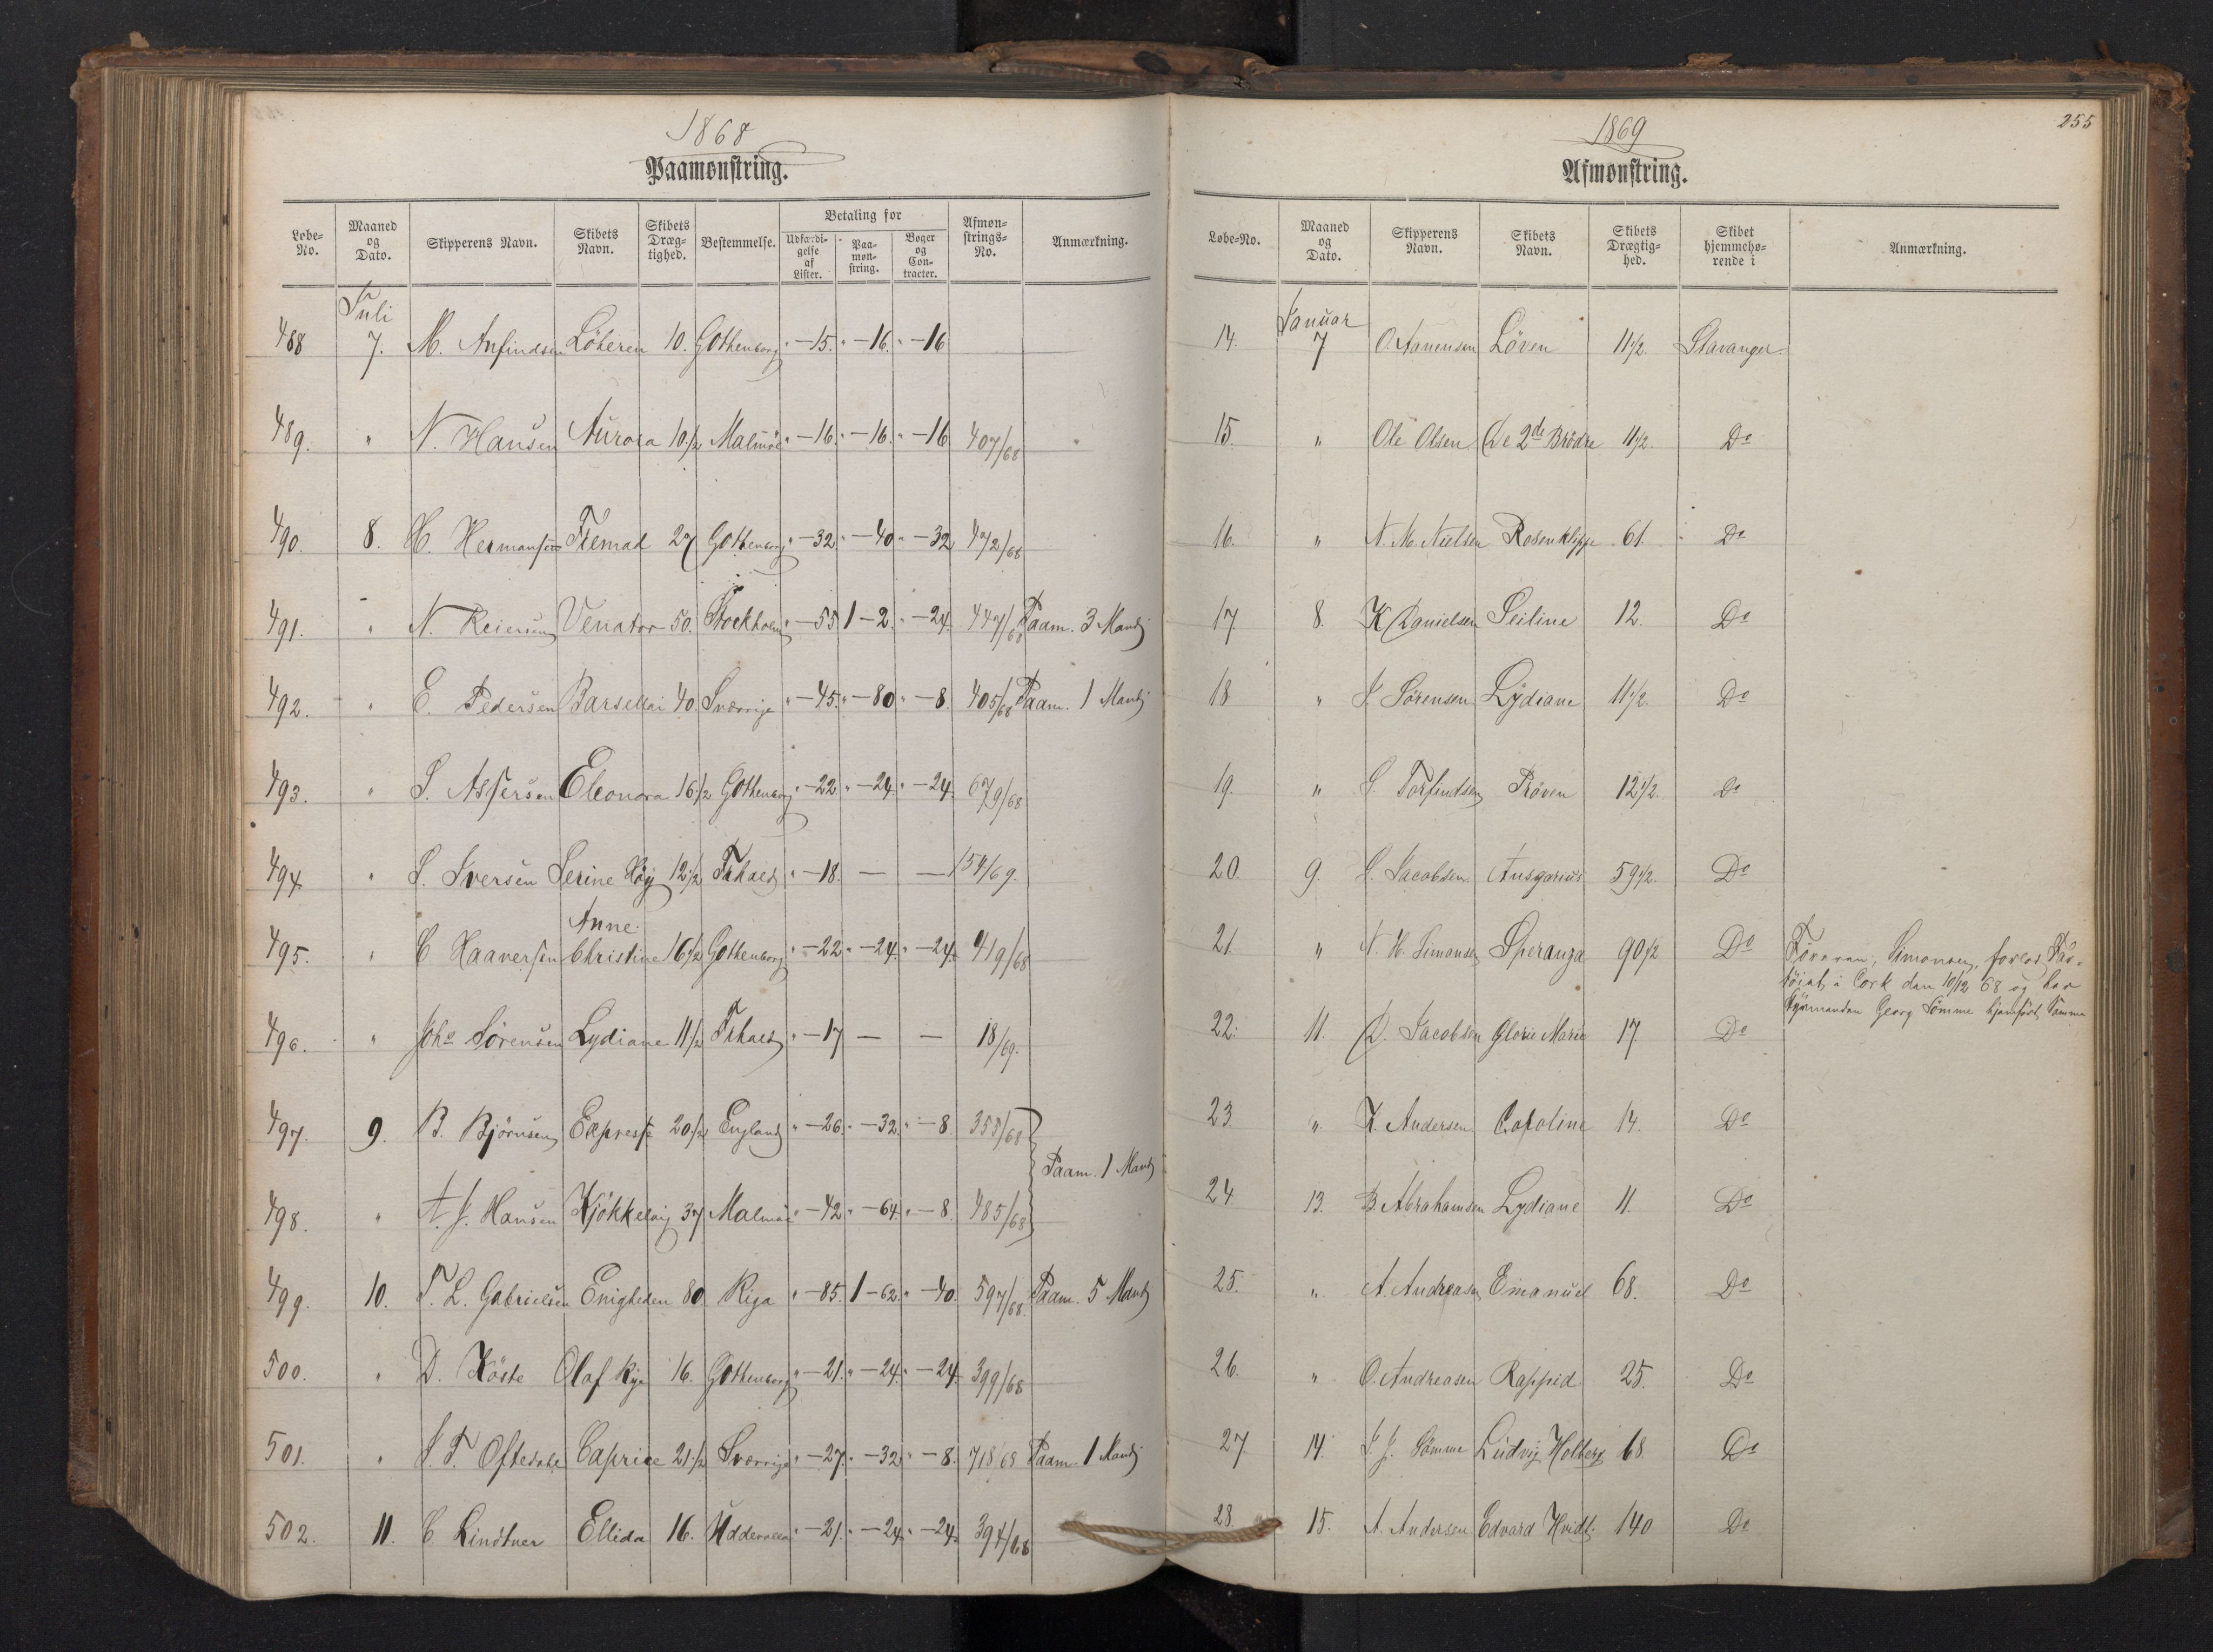 1868
Paamønstring.
Løbe-No. Maaned og Dato. Skipperens Navn. Skibets Navn. Skibets Dræg-tighed. Bestemmelse. Betaling for Udfærdi-gelse af Lister. Paa-møn-string. Bøger og Con-tracter. Afmøn-strings-No. Anmærkning.
Juli
488 7. M. Anfindsen Löberen 10. Gothenborg " - 15. " - 16. " - 16
489. " N. Hansen Aurora 10 1/2 Malmöe " - 16. " - 16. " - 16 407/68
490. 8. H. Hermansen Fremad 27 Gothenborg " - 32. " - 40 " - 32 472/68
491. " N. Reiersen Venator 50. Stockholm " - 55 1 - 2. " - 24. 447/68 Paam. 3 Mand
492. " E. Pedersen 40 Sverrige " - 45. " - 80 " - 8. 405/68 Paam. 1 Mand
493. " S. Assersen Eleonora 16 1/2 Gothenborg " - 22. " - 24. " - 24. 679/68
494. " S. Iversen Serine 12 1/2 " - 18. — — 154/69.
Anne
495. " C Haaversen Christine 16 1/2 Gothenborg " - 22 " - 24. " - 24. 419/68
496. " Johs Sörensen Lydiane 11 1/2 " - 17 — — 18/69.
497. 9. B. Björnsen Express 20 1/2 England " - 26. " - 32. " - 8. 355/68
Paam. 1 Mand
498. " A. J. Hansen Kjökkelvig 37 Malmöe " - 42 " - 64. " - 8. 485/68
499. 10. T. L. Gabrielsen Enigheden 80 Riga " - 85. 1 - 62. " - 40. 597/68. Paam. 5 Mand
500. " D. Köste Olaf Rye 16. Gothenborg " - 21. " - 24. " - 24. 399/68
501. " J. T. Oftedahl Caprice 21 1/2 Sverrige " - 27. " - 32 " - 8. 718/68 Paam. 1 Mand
502. 11. C Lindtner Ellida 16. Uddevalla " - 21. " - 24. " - 24. 394/68
1869
255
Afmønstring.
Løbe-No. Maaned og Dato. Skipperens Navn. Skibets Navn. Skibets Drægtig-hed. Skibet hjemmehø-rende i Anmærkning.
Januar
14. 7 O. Aanensen Löven 11 1/2. Stavanger
15. " Ole Olsen De 2de Brödre 11 1/2. Do
16. " N. M. Nielsen Rosenklippe 61. Do
17. 8. K Danielsen Seiline 12. Do
18 " J. Sörensen Lydiane 11 1/2. Do
19. " S. Torfindsen Pröven 12 1/2. Do
20. 9. J. Jacobsen Ansgarius 59 1/2. Do
21. " N. H. Simonsen Speranza 90 1/2 Do Föreren, Simonsen, forlod Far-
töiet i Cork den 10/12 68 og har
Styrmanden Georg Sömme hjemført Samme
22. 11. D. Jacobsen Glorie Marie 17. Do
23. " K. Andersen Caroline 14. Do
24. 13. B. Abrahamsen Lydiane 11. Do
25. " A. Andreasen Emanuel 68. Do
26. " O. Andreasen Rappid 25. Do
27. 14. J. J. Sömme Ludvig Holberg 68. Do
28. 15. A. Andersen Edvard Hvidt 140 Do